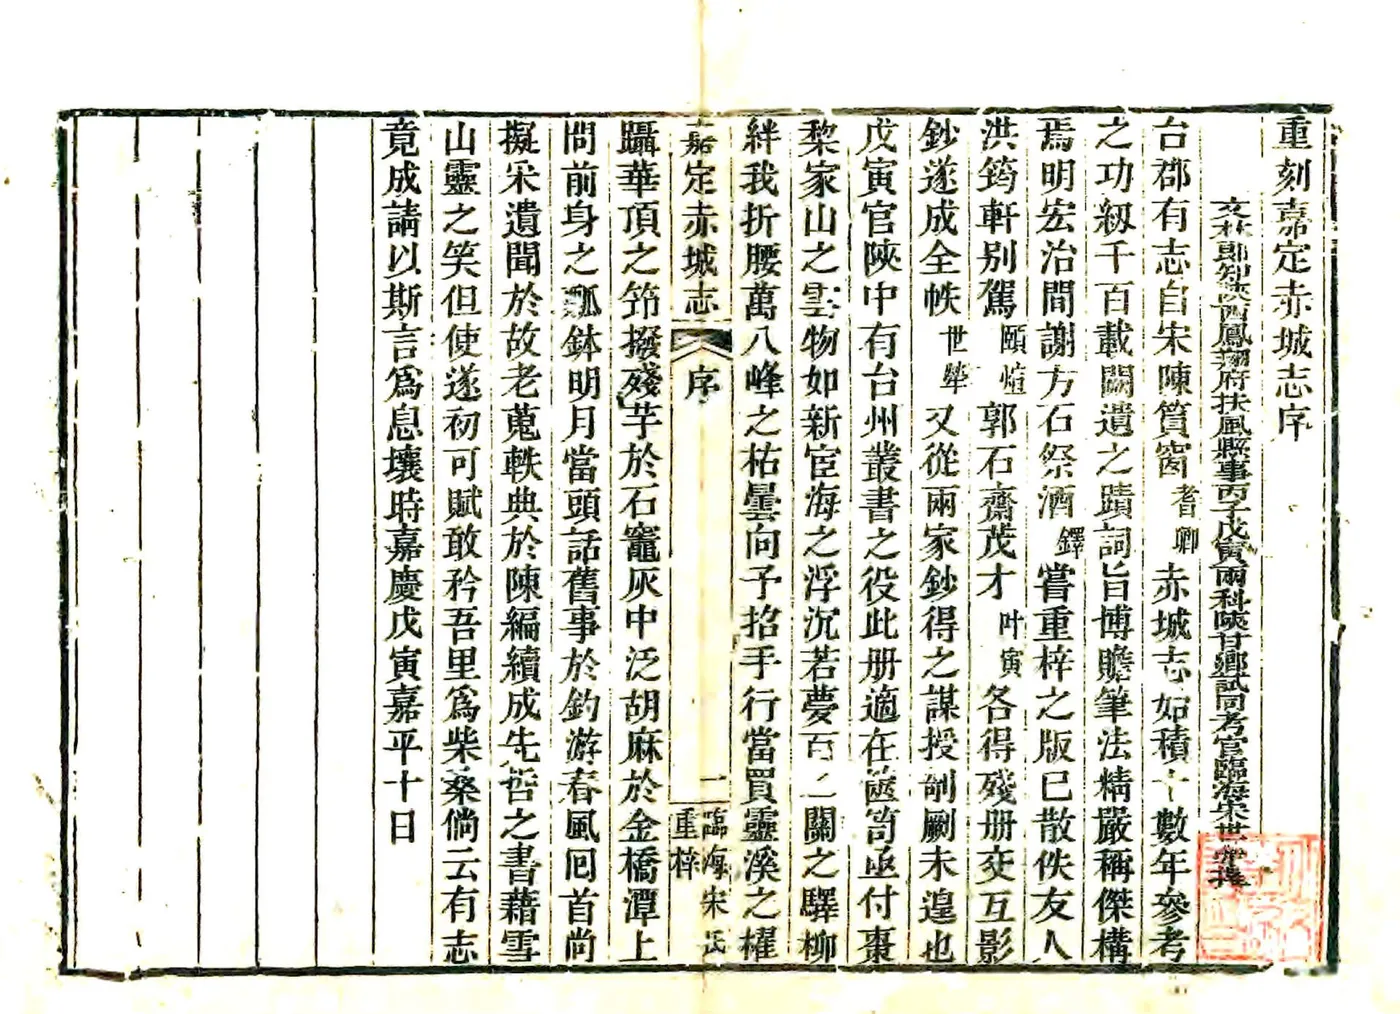 重刻嘉定赤城志序
文林郎知陝西鳳翔府扶風縣事丙子戊寅兩科陝甘鄉試同考官臨海宋世犖撰
台郡有志自宋陳篔窗耆卿赤城志始積十數年參考
之功紉千百載闕遺之蹟詞旨博贍筆法精嚴稱傑構
焉明宏治間謝方石祭酒鐸嘗重梓之版已散佚友人
洪筠軒別駕頤煊郭石齋茂才叶寅各得殘册交互影
鈔遂成全帙世犖又從兩家鈔得之謀授剞劂未遑也
戊寅官陝中有台州叢書之役此册適在篋笥亟付棗
棃家山之雲物如新宦海之浮沉若夢百二關之驛柳
絆我折腰萬八峰之枯曇向予招手行當買靈溪之櫂
嘉定赤城志 序 一 臨海宋氏重梓
躡華頂之笻撥殘芋於石竈灰中泛胡麻於金橋潭上
問前身之瓢鉢明月當頭話舊事於釣游春風囘首尚
擬采遺聞於故老蒐軼典於陳編續成先哲之書藉雪
山靈之笑但使遂初可賦敢矜吾里爲柴桑倘云有志
竟成請以斯言爲息壤時嘉慶戊寅嘉平十日